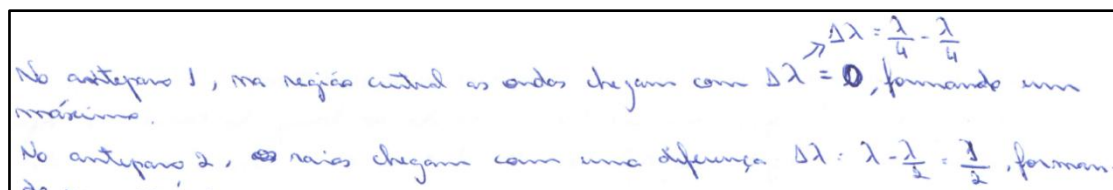 Δλ = λ/4 - λ/4
No anteparo 1, na região central as ondas chegam com Δλ = 0, formando um
máximo.
No anteparo 2, os raios chegam com uma diferença Δλ = λ - λ/2 = λ/2, forman-